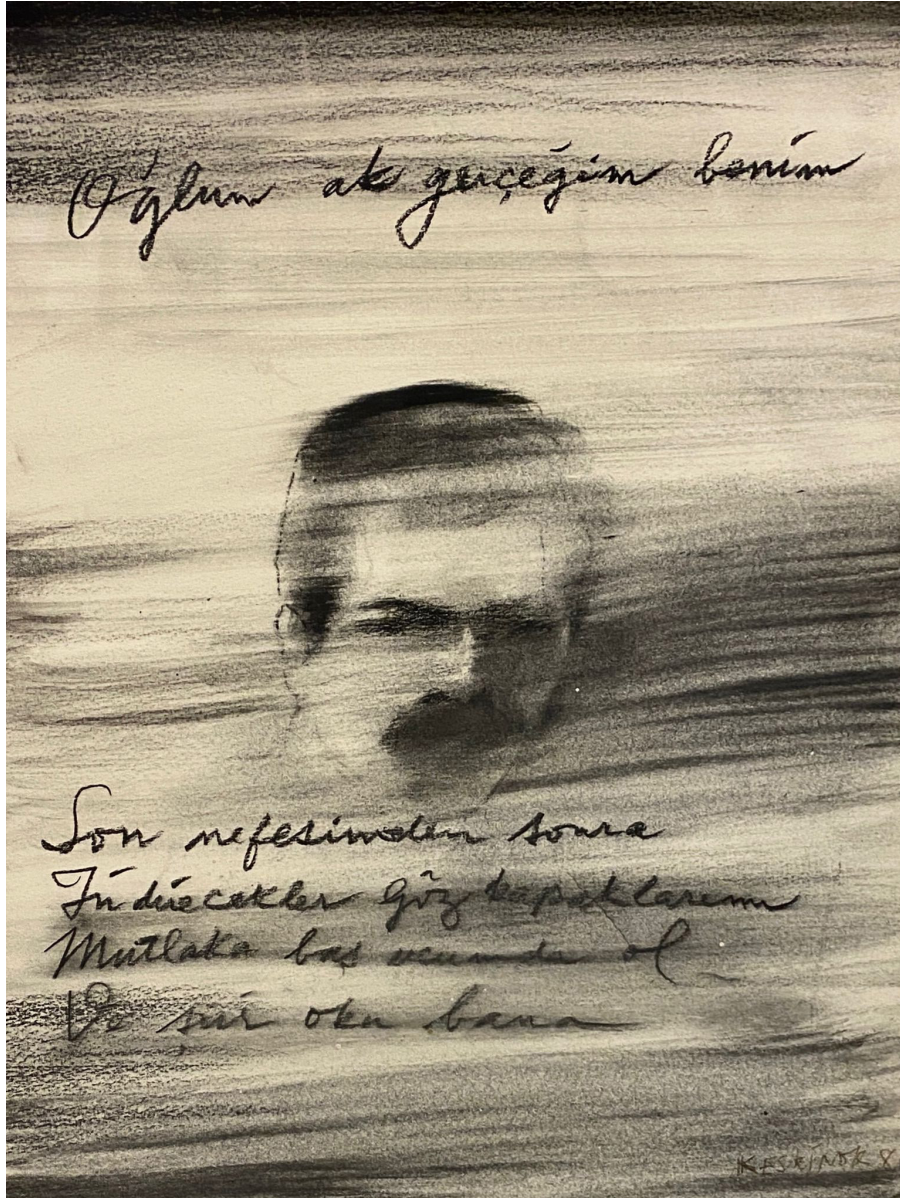 Oğlum ak gerçeğim benim
Son nefesimden sonra
İndirecekler Göz kapaklarımı
Mutlaka baş ucumda ol
Ve şiir oku bana
KESKİNOK 8